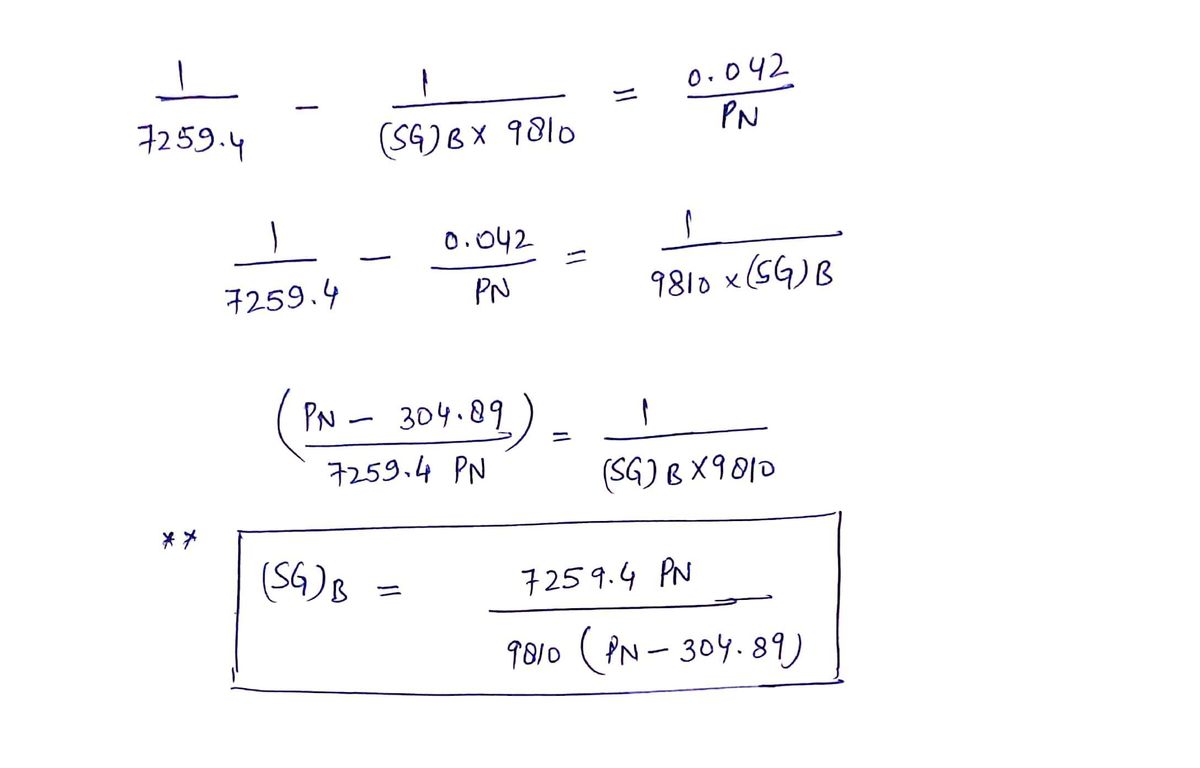 1/7259.4 - 1/((SG)B X 9810) = 0.042/PN
1/7259.4 - 0.042/PN = 1/(9810 x (SG)B)
((PN - 304.89)/(7259.4 PN)) = 1/((SG)B X 9810)
** (SG)B = 7259.4 PN/(9810 (PN - 304.89))